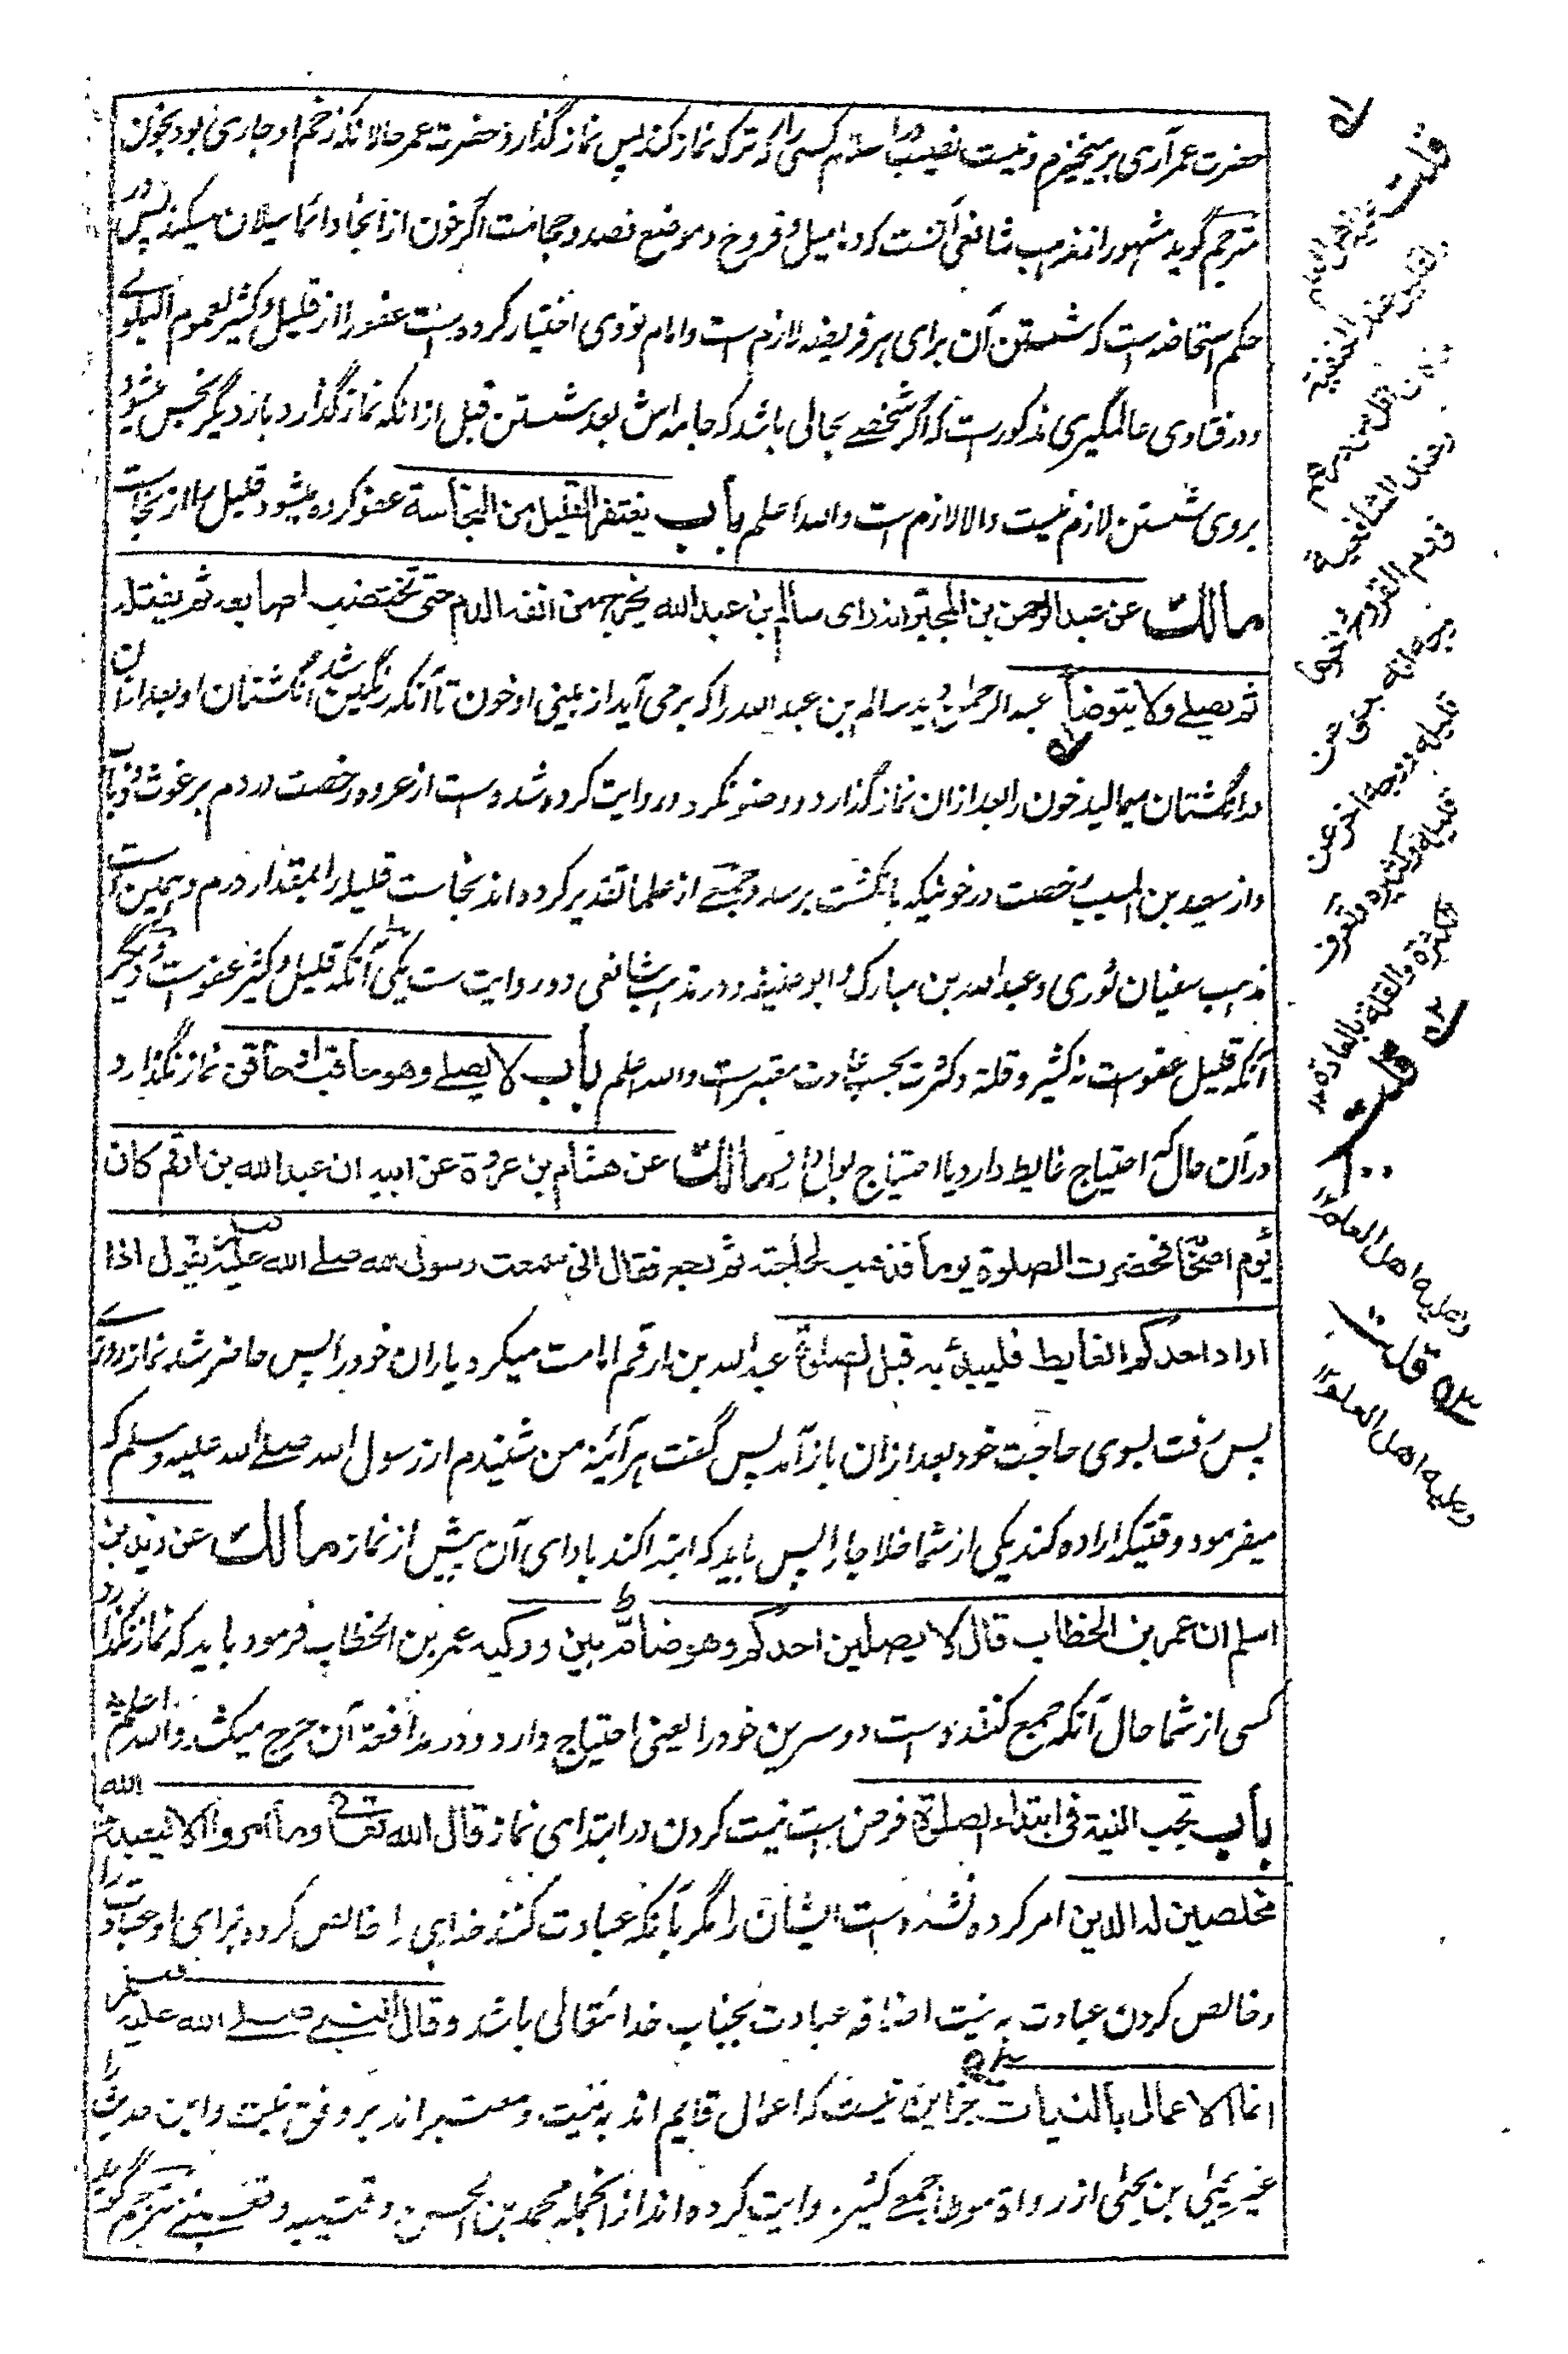 حضرت عمر آری برمیخیزم ونیست نصیب در اسلام کسی را که ترک نماز کند پس نماز گذارد حضرت عمر حالانکه زخم او جاری بود بخون
مترجم گوید مشهور از مذهب شافعی آنست که دمامیل و قروح و موضع فصد و حجامت اگر خون از آنجا دائما سیلان میکند پس در
حکم استحاضه است که شستن آن برای هر فریضه لازم است و امام نووی اختیار کرده است عفو را از قلیل و کثیر لعموم البلوے
و در فتاوی عالمگیری مذکور است که اگر شخصے بحالی باشد که جامه اش بعد شستن قبل از انکه نماز گذارد باز دیگر نجس میشود
بروی شستن لازم نیست والا لازم است والله اعلم باب یغتفر القلیل من النجاسة عفو کرده میشود قلیل را از نجاست
مالك عن عبد الرحمن بن المجبّر انه رای سالم بن عبد الله یخرج من انفه الدم حتی تختضب اصابعه ثم یفتله
ثم یصلے ولا یتوضأ عبد الرحمن دید سالم بن عبد الله را که برمی آید از بینی او خون تا آنکه رنگین شد انگشتان او بعد ازان
بدانگشتان میمالید خون را بعد ازان نماز گذارد و وضو نکرد و روایت کرده شده است از عروه رخصت در دم برغوث و ذباب
و از سعید بن المسیب رخصت در خونیکه بانگشت برسد و جمعے از علما تقدیر کرده اند نجاست قلیل را بمقدار درم و همین است
مذهب سفیان ثوری و عبد الله بن مبارک و ابو حنیفه و در مذهب شافعی دو روایت ست یکی آنکه قلیل و کثیر عفوست و دیگر
آنکه قلیل عفوست نه کثیر و قلة و کثرت بحسب عادت معتبر است والله اعلم باب لا یصلے وهو حاقب او حاقن نماز نگذارد
در آن حال که احتیاج غایط دارد یا احتیاج بول دارد مالك عن هشام بن عروة عن ابیه ان عبد الله بن ارقم کان
یؤم اصحابه فحضرت الصلوة یوما فذهب لحاجته ثم رجع فقال انی سمعت رسول الله صلے الله علیه وسلم یقول اذا
اراد احدکم الغایط فلیبدأ به قبل الصلوة عبد الله بن ارقم امامت میکرد یاران خود را پس حاضر شد نماز روزے
پس رفت بسوی حاجت خود بعد ازان باز آمد پس گفت هر آئینه من شنیدم از رسول الله صلے الله علیه وسلم که
میفرمود وقتیکه اراده کند یکی از شما خلا جا را پس باید که ابتدا کند بادای آن پیش از نماز مالك عن زید بن
اسلم ان عمر بن الخطاب قال لا یصلین احدکم وهو ضامّ بین ورکیه عمر بن الخطاب فرمود باید که نماز نگذارد
کسی از شما حال آنکه جمع کننده است دو سرین خود را یعنی احتیاج دارد و در مدافعة آن حرج میکشد والله اعلم
باب تجب النیة فی ابتداء الصلوة فرض است نیت کردن در ابتدای نماز قال الله تعالے وما امروا الا لیعبدوا الله
مخلصین له الدین امر کرده نشده است ایشان را مگر بآنکه عبادت کنند خدای را خالص کرده برای او عبادت را
و خالص کردن عبادت به نیت اضافه عبادت بجناب خدا تعالی باشد وقال النبے صلے الله علیه وسلم
انما الاعمال بالنیات جز این نیست که اعمال قایم اند به نیت و معتبر اند بر وفق نیت و این حدیث را
غیر یحیی بن یحیی از رواة موطا جمعے کثیر روایت کرده اند از انجمله محمد بن الحسن و قتیبه و قعنبے مترجم گوید
قلت
وعند الشافعیة
قلت
وعلیه اهل العلم
قلت
وعلیه اهل العلم